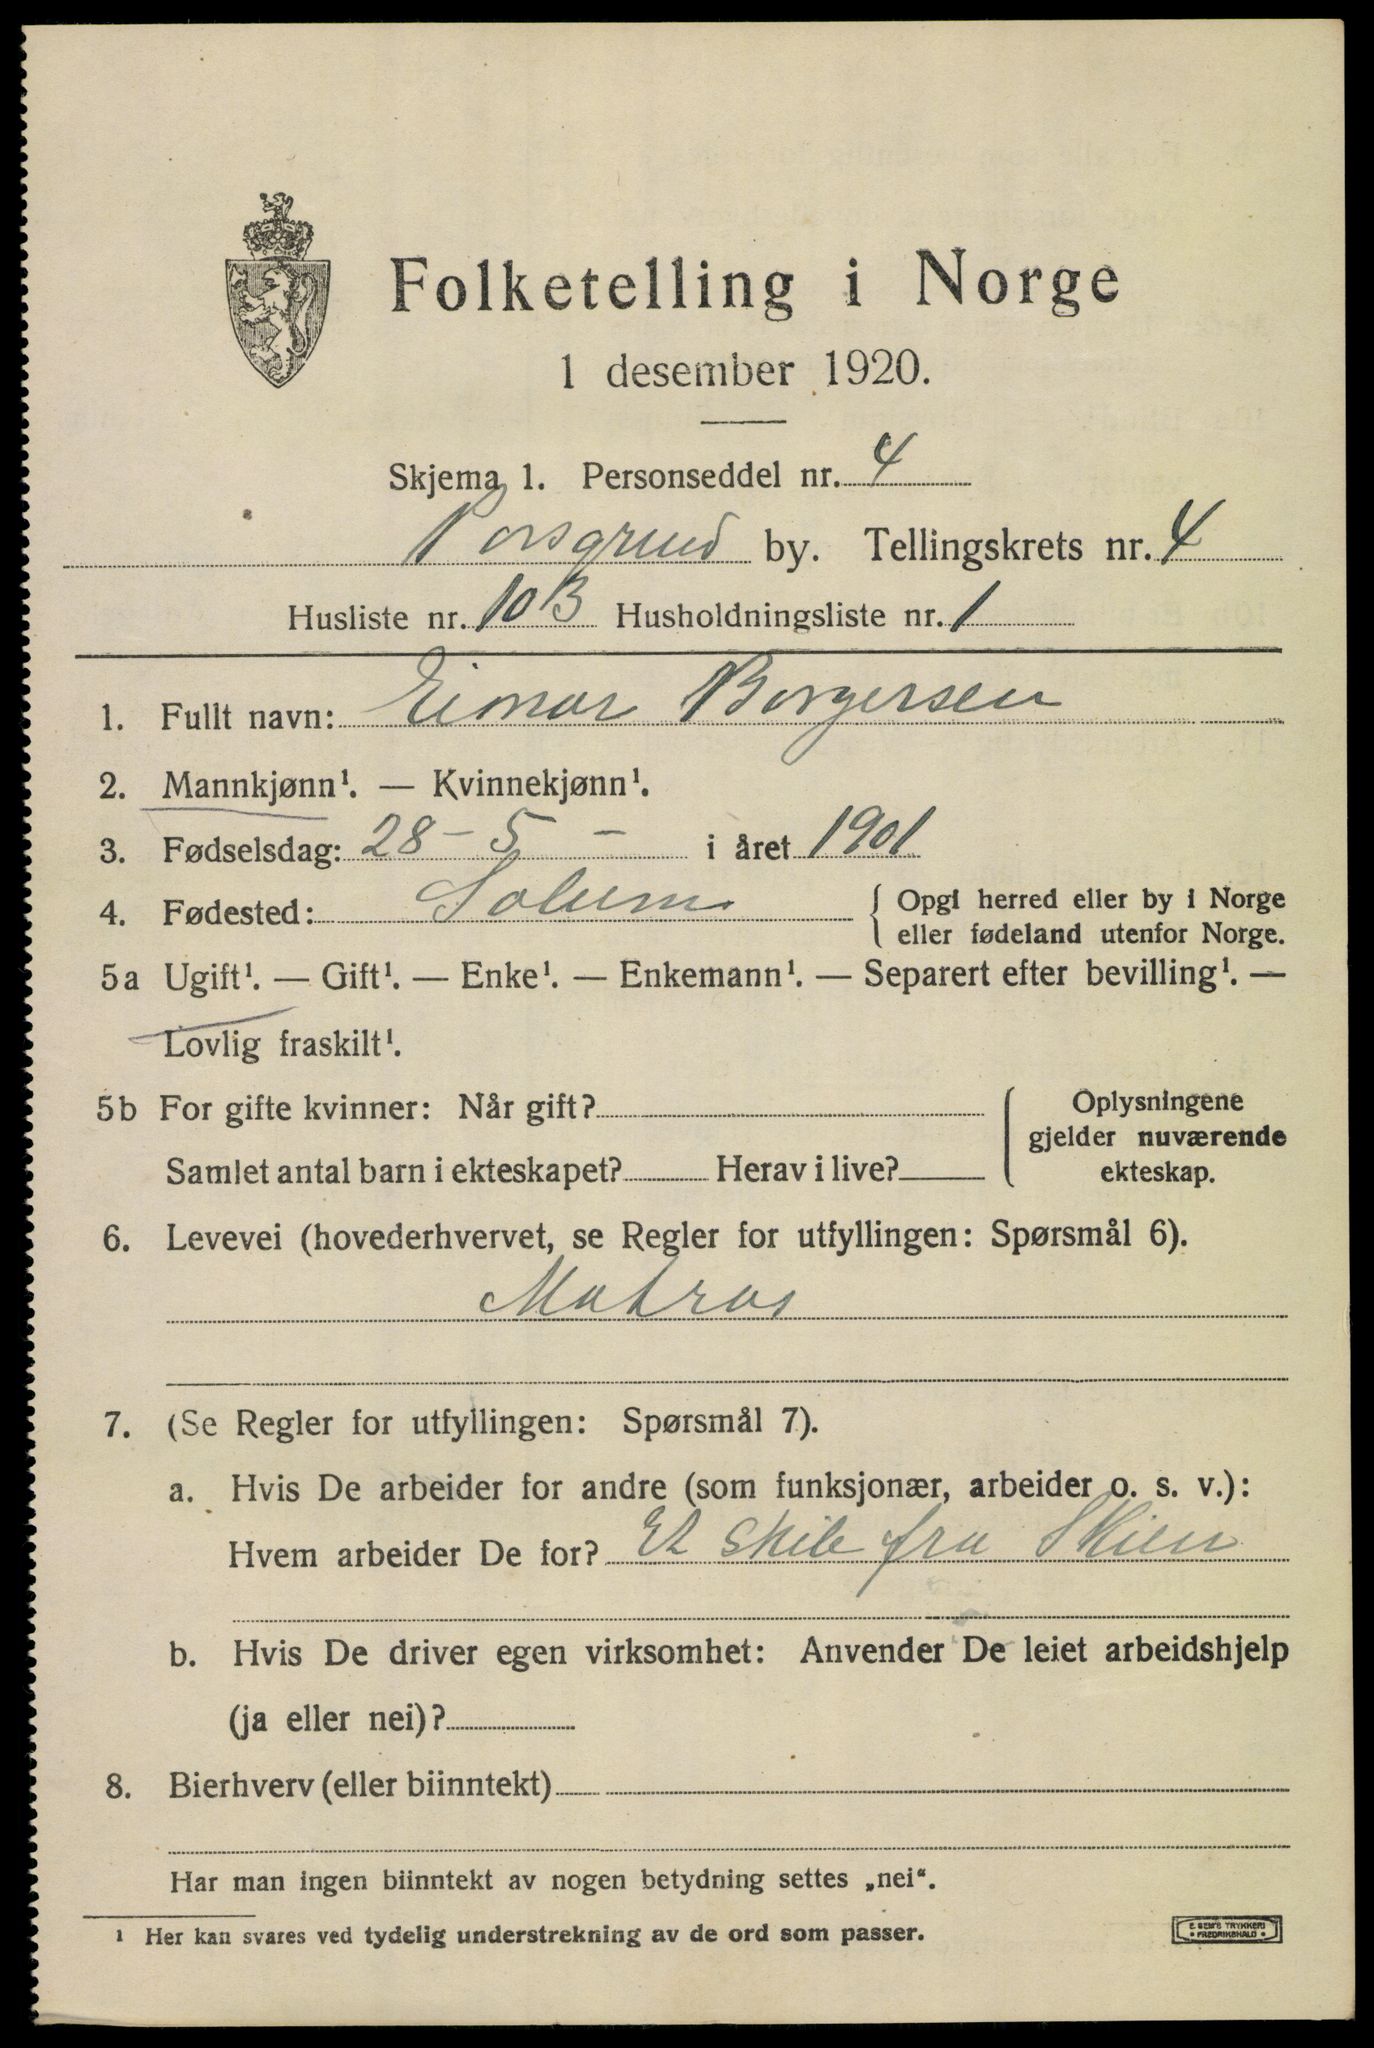 Folketelling i Norge
1 desember 1920.
Skjema 1. Personseddel nr. 4
Porsgrund by. Tellingskrets nr. 4
Husliste nr. 10 B Husholdningsliste nr. 1
1. Fullt navn: Einar Borgersen
2. Mannkjønn¹. — Kvinnekjønn¹.
3. Fødselsdag: 28 – 5 – i året 1901
4. Fødested: Solum { Opgi herred eller by i Norge
eller fødeland utenfor Norge.
5a Ugift¹. — Gift¹. — Enke¹. — Enkemann¹. — Separert efter bevilling¹. —
Lovlig fraskilt¹.
5b For gifte kvinner: Når gift?
Samlet antal barn i ekteskapet? Herav i live?
Oplysningene
gjelder nuværende
ekteskap.
6. Levevei (hovederhvervet, se Regler for utfyllingen: Spørsmål 6).
Matros
7. (Se Regler for utfyllingen: Spørsmål 7).
a. Hvis De arbeider for andre (som funksjonær, arbeider o. s. v.):
Hvem arbeider De for? Et skib fra Skien
b. Hvis De driver egen virksomhet: Anvender De leiet arbeidshjelp
(ja eller nei)?
8. Bierhverv (eller biinntekt)
Har man ingen biinntekt av nogen betydning settes „nei“.
¹ Her kan svares ved tydelig understrekning av de ord som passer.
E. SEM'S TRYKKERI
• FREDRIKSHALD •